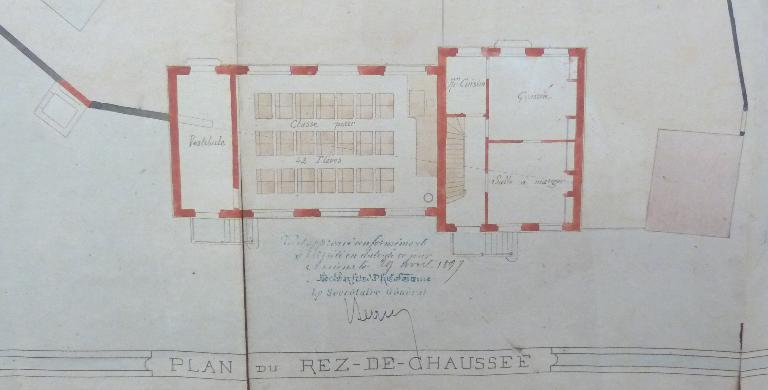 Vestibule
Classe pour
42 Élèves
Cuisine
Salle à manger
Vu et approuvé conformément
à l'arrêté en date de ce jour
Amiens le 29 Avril 1897
Le Secrétaire Général
PLAN DU REZ-DE-CHAUSSEE